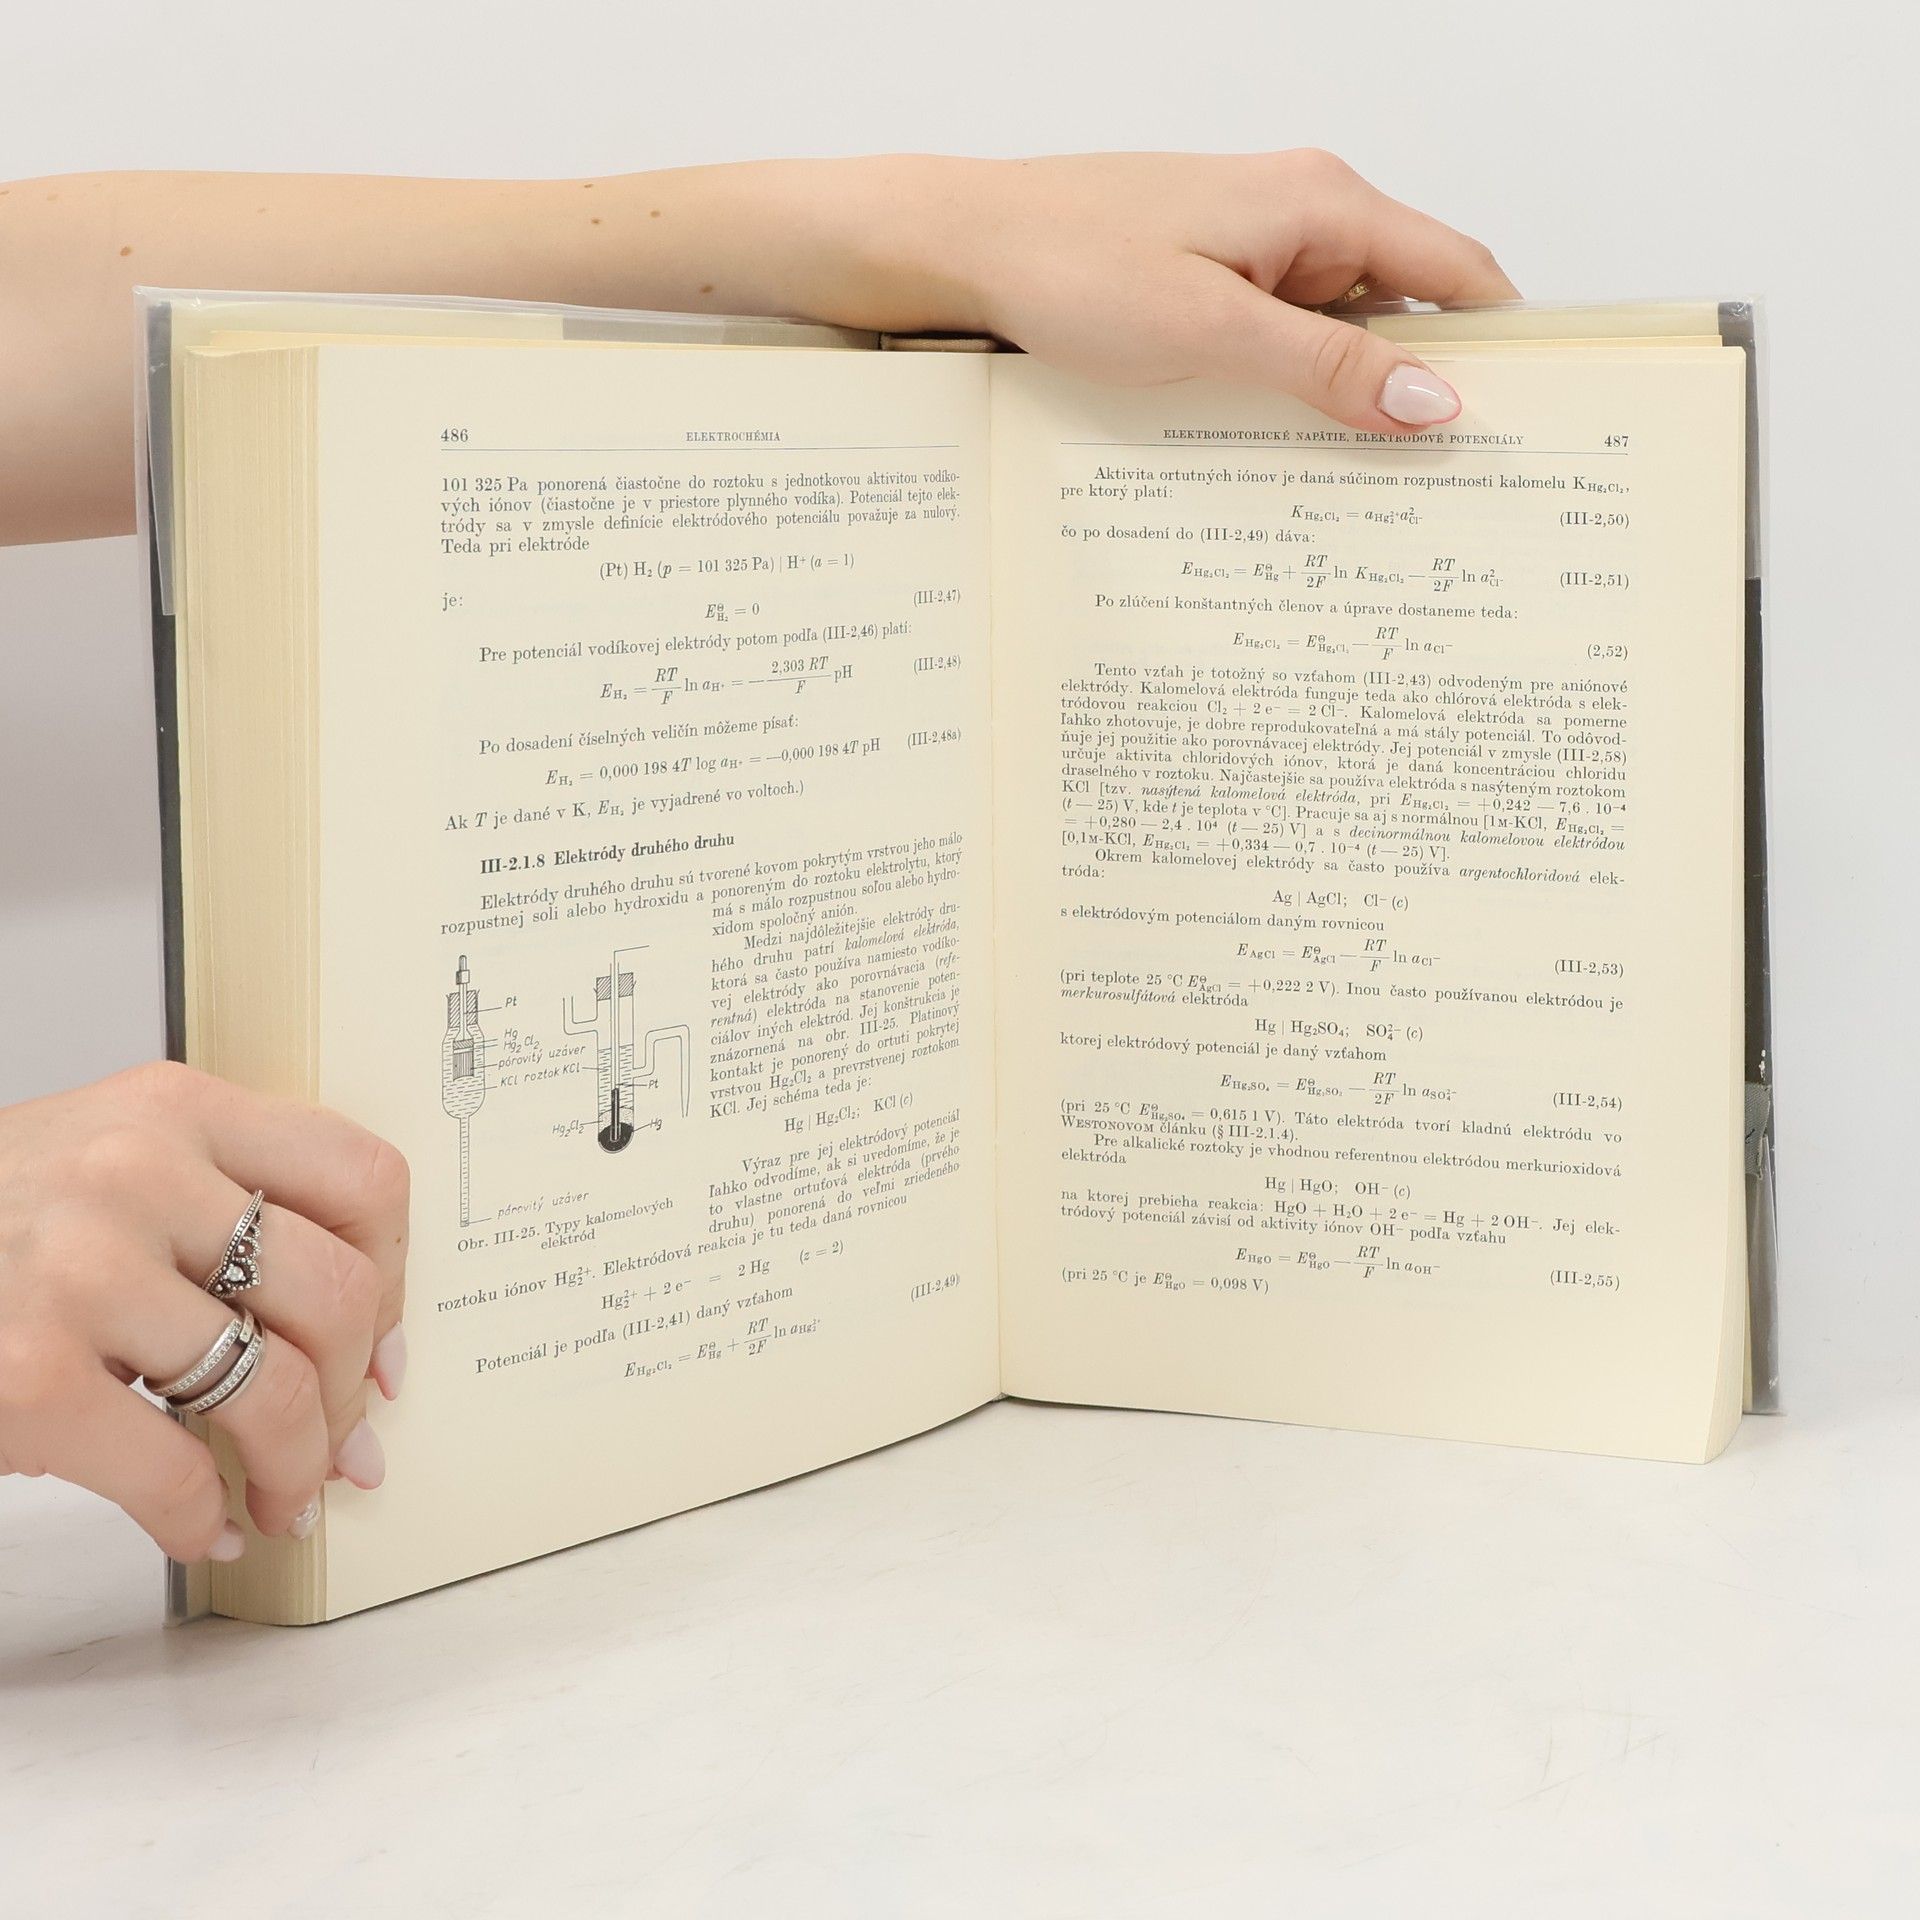 486 ELEKTROCHÉMIA
101 325 Pa ponorená čiastočne do roztoku s jednotkovou aktivitou vodíko-
vých iónov (čiastočne je v priestore plynného vodíka). Potenciál tejto elek-
tródy sa v zmysle definície elektródového potenciálu považuje za nulový.
Teda pri elektróde
(Pt) H₂ (p = 101 325 Pa) | H⁺ (a = 1)
je:
E⊖H₂ = 0 (III-2,47)
Pre potenciál vodíkovej elektródy potom podľa (III-2,46) platí:
E_H₂ = RT/F ln a_H⁺ = − 2,303 RT/F pH (III-2,48)
Po dosadení číselných veličín môžeme písať:
E_H₂ = 0,000 198 4T log a_H⁺ = —0,000 198 4T pH (III-2,48a)
Ak T je dané v K, E_H₂ je vyjadrené vo voltoch.)
III-2.1.8 Elektródy druhého druhu
Elektródy druhého druhu sú tvorené kovom pokrytým vrstvou jeho málo
rozpustnej soli alebo hydroxidu a ponoreným do roztoku elektrolytu, ktorý
má s málo rozpustnou soľou alebo hydro-
xidom spoločný anión.
Medzi najdôležitejšie elektródy dru-
hého druhu patrí kalomelová elektróda,
ktorá sa často používa namiesto vodíko-
vej elektródy ako porovnávacia (refe-
rentná) elektróda na stanovenie poten-
ciálov iných elektród. Jej konštrukcia je
znázornená na obr. III-25. Platinový
kontakt je ponorený do ortuti pokrytej
vrstvou Hg₂Cl₂ a prevrstvenej roztokom
KCl. Jej schéma teda je:
Hg | Hg₂Cl₂; KCl (c)
Výraz pre jej elektródový potenciál
ľahko odvodíme, ak si uvedomíme, že je
to vlastne ortuťová elektróda (prvého
druhu) ponorená do veľmi zriedeného
Pt
Hg
Hg₂Cl₂
pórovitý uzáver
KCl roztok KCl
Pt
Hg₂Cl₂
Hg
pórovitý uzáver
Obr. III-25. Typy kalomelových
elektród
roztoku iónov Hg₂²⁺. Elektródová reakcia je tu teda daná rovnicou
Hg₂²⁺ + 2 e⁻ = 2 Hg (z = 2)
Potenciál je podľa (III-2,41) daný vzťahom
E_Hg₂Cl₂ = E⊖Hg + RT/2F ln a_Hg₂²⁺ (III-2,49)
ELEKTROMOTORICKÉ NAPÄTIE, ELEKTRÓDOVÉ POTENCIÁLY 487
Aktivita ortutných iónov je daná súčinom rozpustnosti kalomelu K_Hg₂Cl₂,
pre ktorý platí:
K_Hg₂Cl₂ = a_Hg₂²⁺ a²_Cl⁻ (III-2,50)
čo po dosadení do (III-2,49) dáva:
E_Hg₂Cl₂ = E⊖Hg + RT/2F ln K_Hg₂Cl₂ — RT/2F ln a²_Cl⁻ (III-2,51)
Po zlúčení konštantných členov a úprave dostaneme teda:
E_Hg₂Cl₂ = E⊖Hg₂Cl₂ — RT/F ln a_Cl⁻ (2,52)
Tento vzťah je totožný so vzťahom (III-2,43) odvodeným pre aniónové
elektródy. Kalomelová elektróda funguje teda ako chlórová elektróda s elek-
tródovou reakciou Cl₂ + 2 e⁻ = 2 Cl⁻. Kalomelová elektróda sa pomerne
ľahko zhotovuje, je dobre reprodukovateľná a má stály potenciál. To odôvod-
ňuje jej použitie ako porovnávacej elektródy. Jej potenciál v zmysle (III-2,58)
určuje aktivita chloridových iónov, ktorá je daná koncentráciou chloridu
draselného v roztoku. Najčastejšie sa používa elektróda s nasýteným roztokom
KCl [tzv. nasýtená kalomelová elektróda, pri E_Hg₂Cl₂ = +0,242 — 7,6 . 10⁻⁴
(t — 25) V, kde t je teplota v °C]. Pracuje sa aj s normálnou [1M-KCl, E_Hg₂Cl₂ =
= +0,280 — 2,4 . 10⁴ (t — 25) V] a s decinormálnou kalomelovou elektródou
[0,1M-KCl, E_Hg₂Cl₂ = +0,334 — 0,7 . 10⁻⁴ (t — 25) V].
Okrem kalomelovej elektródy sa často používa argentochloridová elek-
tróda:
Ag | AgCl; Cl⁻ (c)
s elektródovým potenciálom daným rovnicou
E_AgCl = E⊖AgCl — RT/F ln a_Cl⁻ (III-2,53)
(pri teplote 25 °C E⊖AgCl = +0,222 2 V). Inou často používanou elektródou je
merkurosulfátová elektróda
Hg | Hg₂SO₄; SO₄²⁻ (c)
ktorej elektródový potenciál je daný vzťahom
E_Hg₂SO₄ = E⊖Hg₂SO₄ — RT/2F ln a_SO₄²⁻ (III-2,54)
(pri 25 °C E⊖Hg₂SO₄ = 0,615 1 V). Táto elektróda tvorí kladnú elektródu vo
WESTONOVOM článku (§ III-2.1.4).
Pre alkalické roztoky je vhodnou referentnou elektródou merkurioxidová
elektróda
Hg | HgO; OH⁻ (c)
na ktorej prebieha reakcia: HgO + H₂O + 2 e⁻ = Hg + 2 OH⁻. Jej elek-
tródový potenciál závisí od aktivity iónov OH⁻ podľa vzťahu
E_HgO = E⊖HgO — RT/F ln a_OH⁻ (III-2,55)
(pri 25 °C je E⊖HgO = 0,098 V)